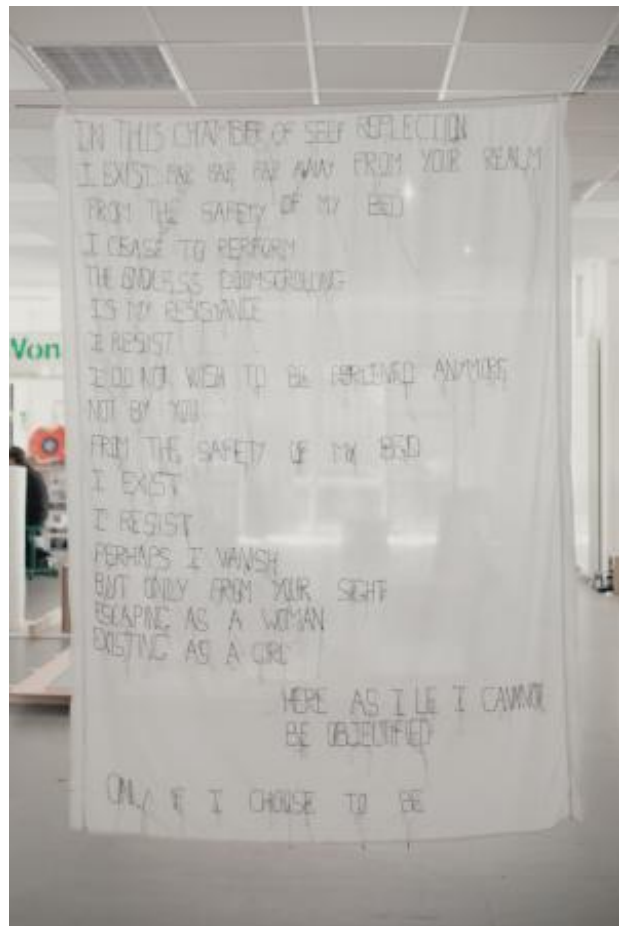 IN THIS CHAMBER OF SELF REFLECTION
I EXIST FAR FAR FAR AWAY FROM YOUR REALM
FROM THE SAFETY OF MY BED
I CEASE TO PERFORM
THE ENDLESS DOOMSCROLLING
IS MY RESISTANCE
I RESIST
I DO NOT WISH TO BE PERCEIVED ANYMORE
NOT BY YOU
FROM THE SAFETY OF MY BED
I EXIST
I RESIST
PERHAPS I VANISH
BUT ONLY FROM YOUR SIGHT
ESCAPING AS A WOMAN
EXISTING AS A GIRL
HERE AS I LIE I CANNOT
BE OBJECTIFIED
ONLY IF I CHOOSE TO BE
Von